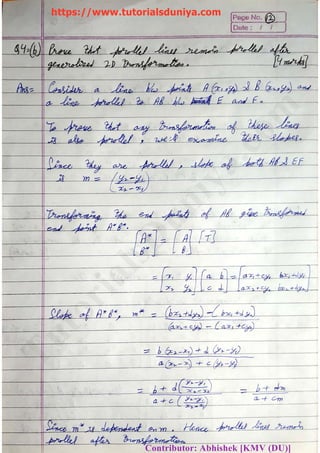 https://www.tutorialsduniya.com
Page No. 12
Date: / /
Q4.(b) Prove that parallel lines remain parallel after
generalized 2D Transformation. [4 marks]
Ans= Consider a line b/w points A (x₁,y₁) & B (x₂,y₂) and
a line parallel to AB b/w E and F.
To prove that any transformation of these lines
is also parallel, we'll examine their slopes.
Since they are parallel, slope of both AB & EF
is m = (y₂-y₁ / x₂-x₁)
Transforming the end points of AB give transformed
end point A*B*.
[A* B*] = [A B] [T]
= [x₁ y₁ x₂ y₂] [a b c d] = [ax₁+cy₁ bx₁+dy₁ ax₂+cy₂ bx₂+dy₂]
Slope of A*B*, m* = (bx₂+dy₂) - (bx₁+dy₁) / (ax₂+cy₂) - (ax₁+cy₁)
= b(x₂-x₁) + d(y₂-y₁) / a(x₂-x₁) + c(y₂-y₁)
= b + d(y₂-y₁ / x₂-x₁) / a + c(y₂-y₁ / x₂-x₁) = b + dm / a + cm
Since m* is dependent on m. Hence parallel lines remain
parallel after transformation
Contributor: Abhishek [KMV (DU)]